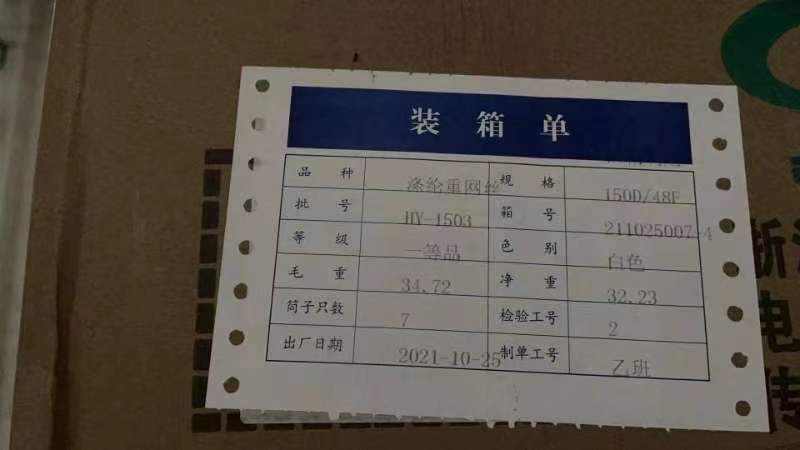 装箱单
品种 涤纶重网丝 规格 150D/48F
批号 HY-1503 箱号 211025007-4
等级 一等品 色别 白色
毛重 34.72 净重 32.23
筒子只数 7 检验工号 2
出厂日期 2021-10-25 制单工号 乙班
浙
电
传